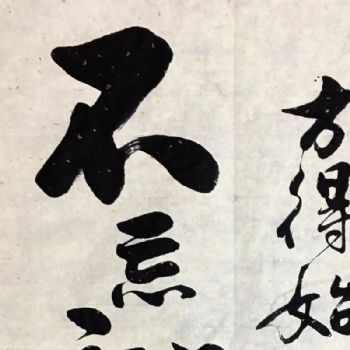 不忘
方得始